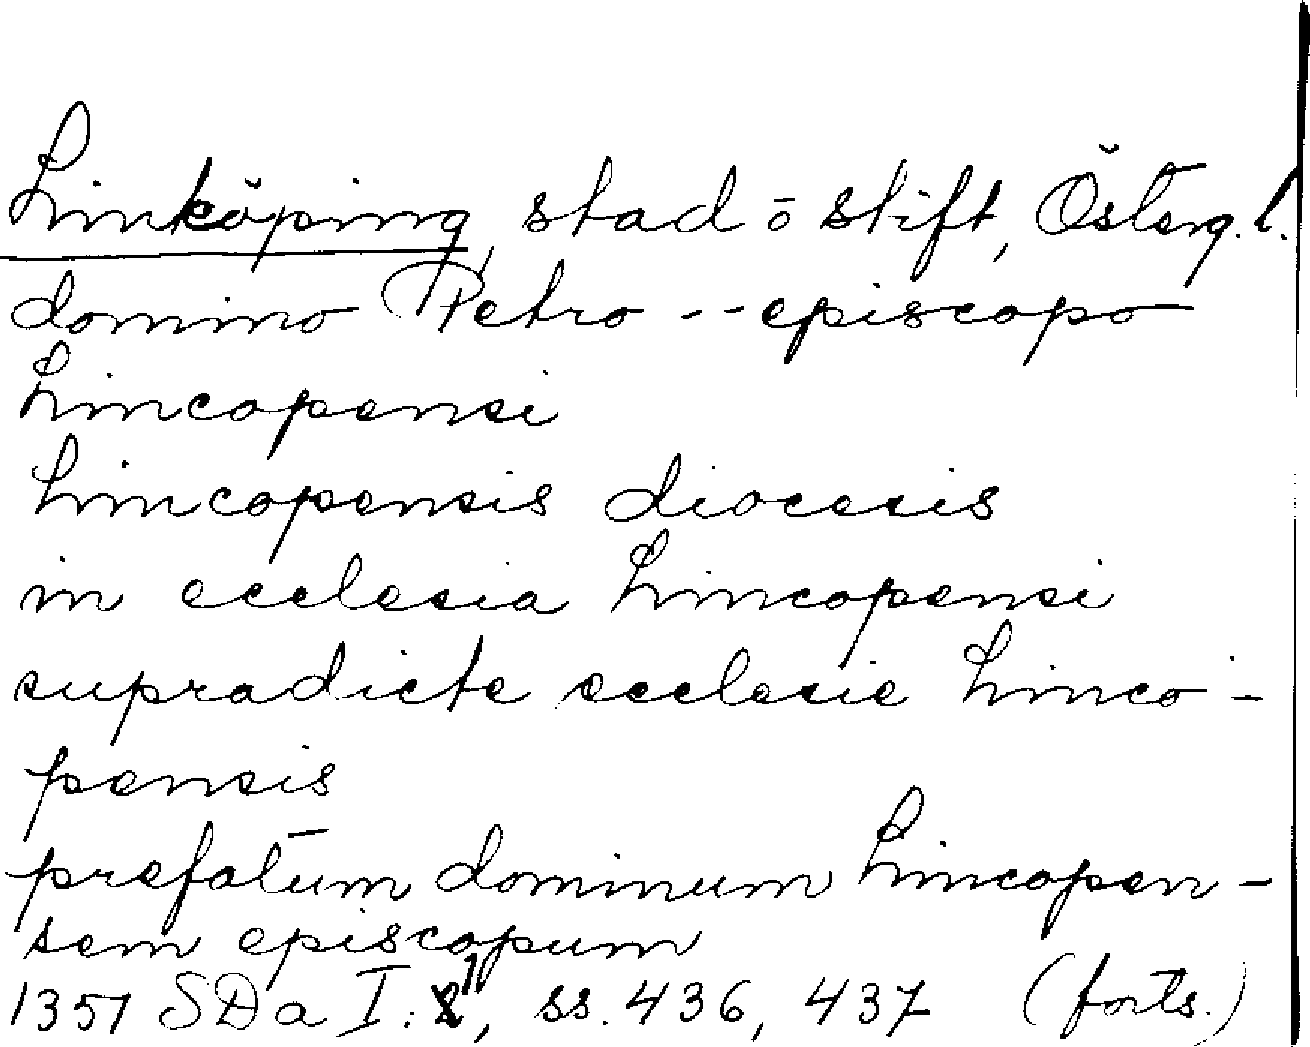 Linköping, stad o stift, Österg. l.
domino Petro -- episcopo
Lincopensi
Lincopensis diocesis
in ecclesia Lincopensi
supradicte ecclesie Linco-
pensis
prefatum dominum Lincopen-
sem episcopum
1351 SDa I:1, ss. 436, 437 (forts.)